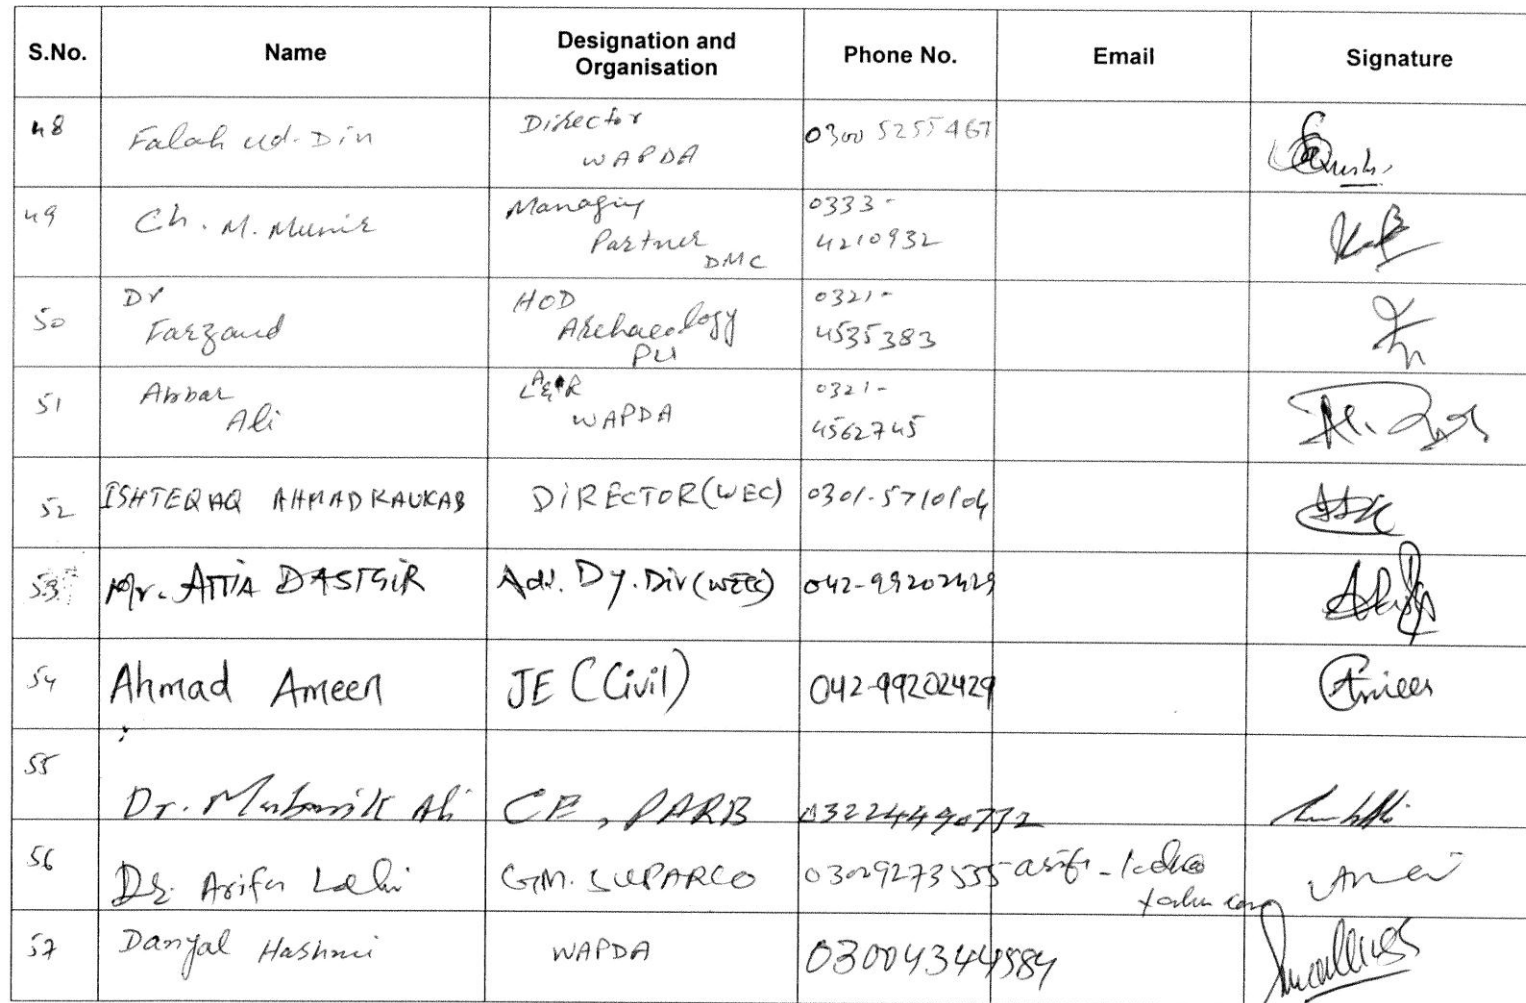 S.No. Name Designation and Organisation Phone No. Email Signature
48 Falah ud. Din Director WAPDA 0300 5255467
49 Ch. M. Munir Managing Partner DMC 0333-4210932
50 Dr Farzand HOD Archaeology PU 0321-4535383
51 Abbar Ali L&R WAPDA 0321-4562745
52 ISHTEQAQ AHMAD KAUKAB DIRECTOR (WEC) 0301-5710104
53 Mr. ATTIA DASTGIR Adl. Dy. Dir (WEC) 042-99202429
54 Ahmad Ameen JE (Civil) 042-99202429
55 Dr. Mubarik Ali CE, PARB 03224490772
56 Dr. Arifa Lodhi GM. SUPARCO 03029273555
57 Danyal Hashmi WAPDA 03004344984